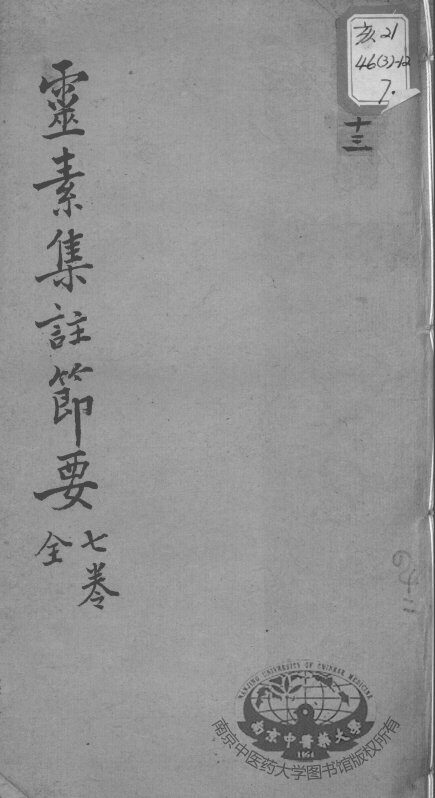 亥21
46(3)-12
7.
十三
靈素集註節要
七卷
全
NANJING UNIVERSITY OF CHINESE MEDICINE
南京中醫藥大學
1954
南京中医药大学图书馆版权所有